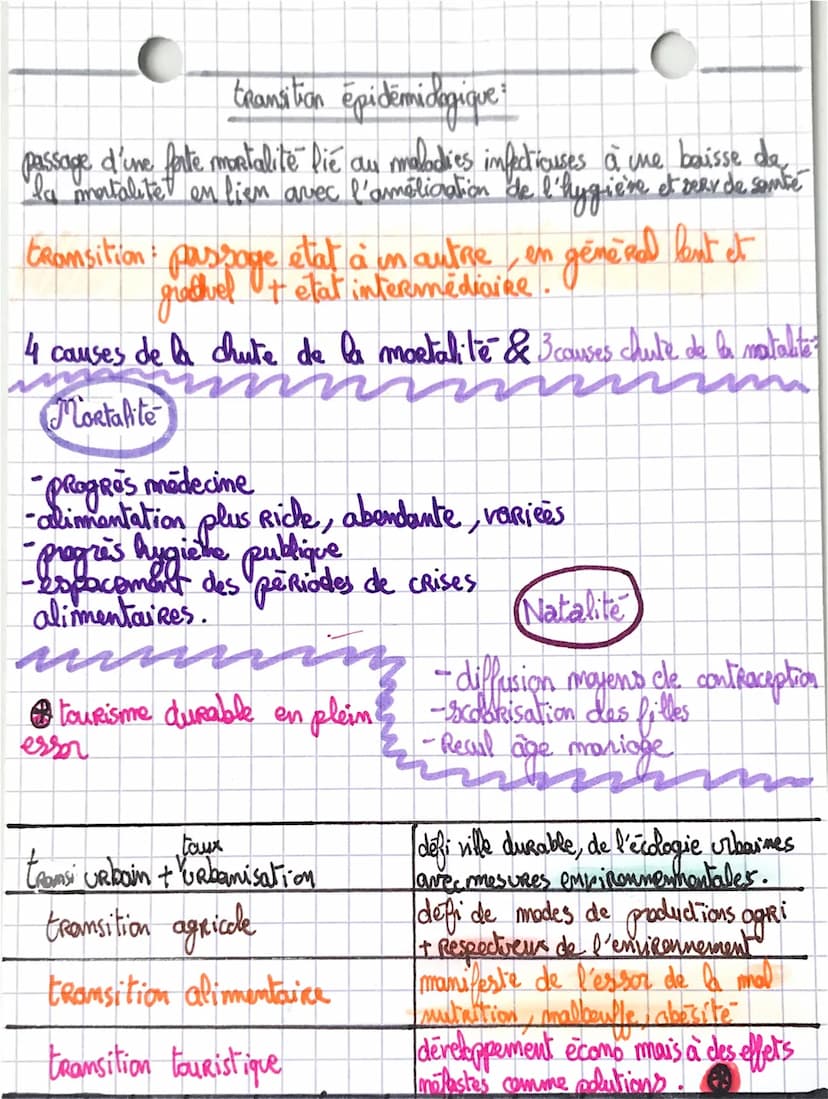 transition épidémiologique:
passage d'une forte mortalité lié au maladies infectieuses à une baisse de
la mortalité en lien avec l'amélioration de l'hygiène et serv de santé
transition: passage état à un autre, en général lent et
graduel + état intermédiaire.
4 causes de la chute de la mortalité & 3 causes chute de la natalité:
Mortalité
- progrès médecine
- alimentation plus riche, abondante, variéés
- progrès hygiène publique
- espacement des périodes de crises
alimentaires.
Natalité
- diffusion moyens de contraception
- scolarisation des filles
- Recul âge mariage
tourisme durable en plein
essor
taux
transi urbain + urbanisation
défi ville durable, de l'écologie urbaines
avec mesures environnementales.
transition agricole
défi de modes de productions agri
+ respectueux de l'environnement
transition alimentaire
manifeste de l'essor de la mal
nutrition, malbouffe, obésité
transition touristique
développement écono mais à des effets
néfastes comme polutions.